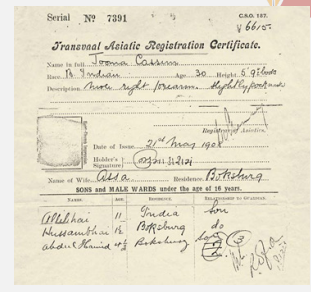 Serial No 7391
C.S.O. 137.
6615.
Transvaal Asiatic Registration Certificate.
Name in full Jooma Cassim
Race B. Indian Age 30 Height 5' 9"
Description mole right forearm. Slightly pock
Registrar of Asiatics.
Date of Issue 21st May 1908
Holder's Signature
Name of Wife Assa Residence Boksburg
SONS AND MALE WARDS under the age of 16 years.
NAMES. AGE. RESIDENCE. RELATIONSHIP TO GUARDIAN.
Allibhai 11 India Son
Hussambhai Boksburg do
Abdul Hamid Boksburg